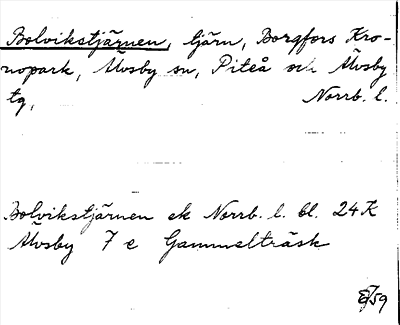 Bolvikstjärnen, tjärn, Borgfors Kro-
nopark, Älvsby sn, Piteå och Älvsby
tg, Norrb. l.
Bolvikstjärnen ek Norrb. l. bl. 24 K
Älvsby 7 e Gammelträsk
59